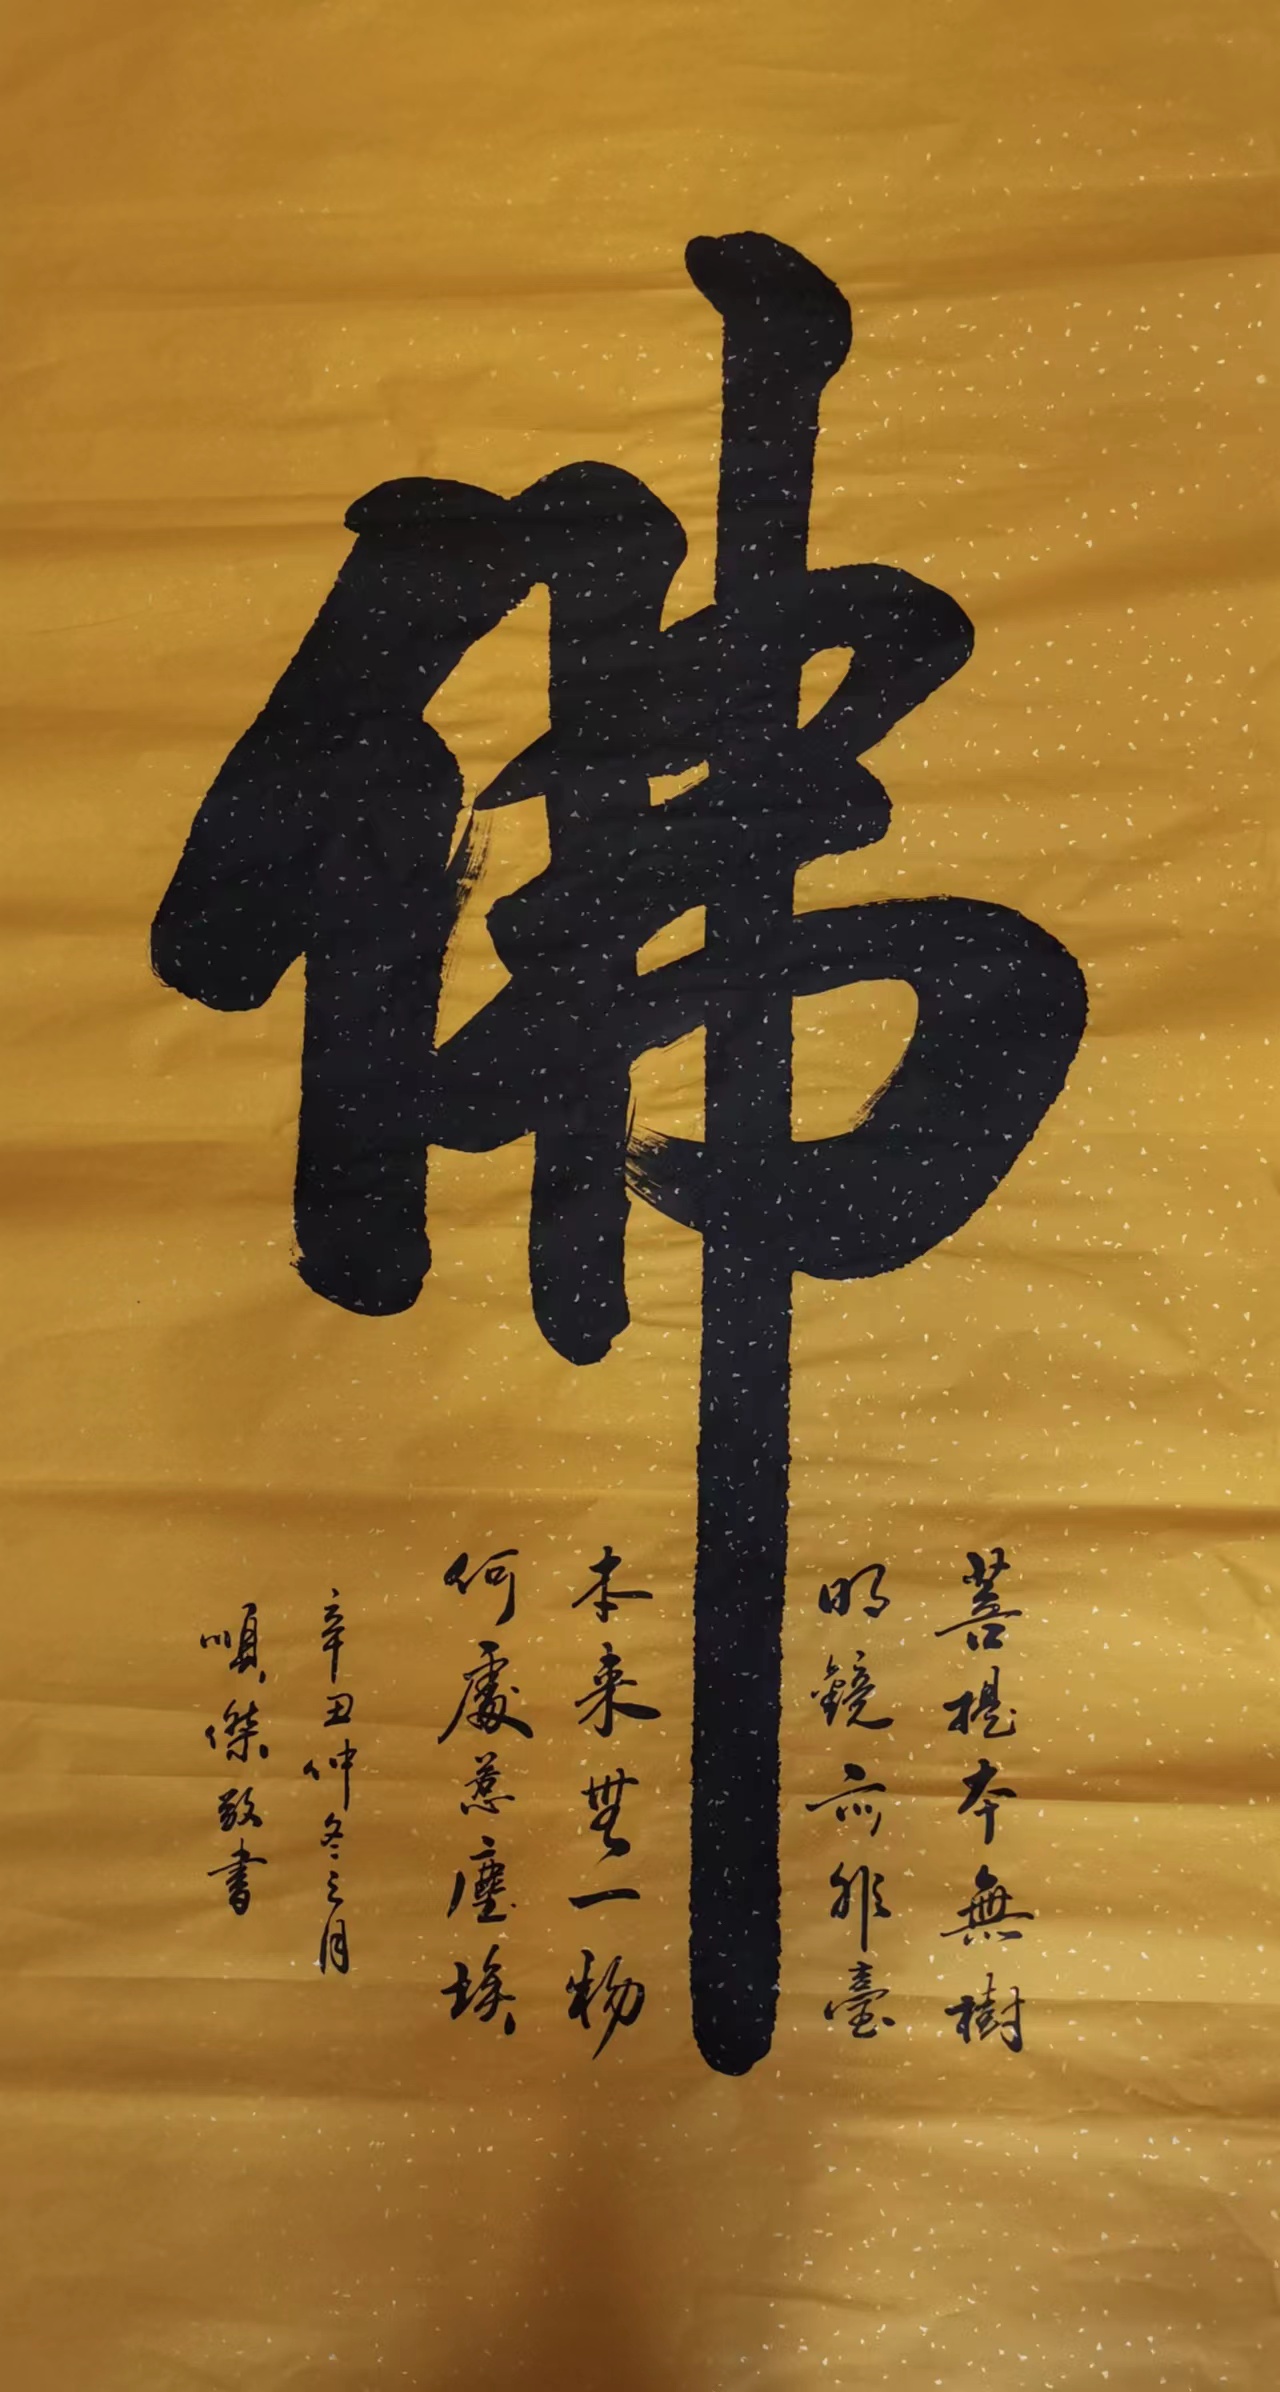 佛
菩提本無樹
明鏡亦非臺
本来無一物
何處惹塵埃
辛丑仲冬之月
順傑敬書